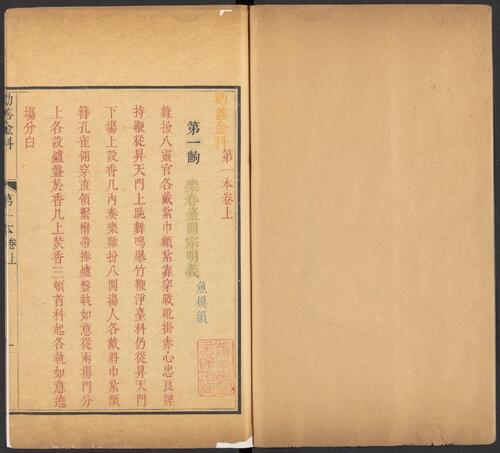 勸善金科
第一本卷上
第一齣
樂春臺開宗明義
魚模韻
雜扮八靈官各戴紮巾額紮靠穿戰靴掛赤心忠良牌
持鞭從昇天門上跳舞鳴爆竹鞭淨臺科仍從昇天門
下場上設香几內奏樂雜扮八開場人各戴將巾紮額
簪孔雀翎穿直領繫鸞帶捧爐盤執如意從兩場門分
上各設爐盤於香几上焚香三頓首科起各執如意遶
場分白
勸善金科
第一本卷上
一